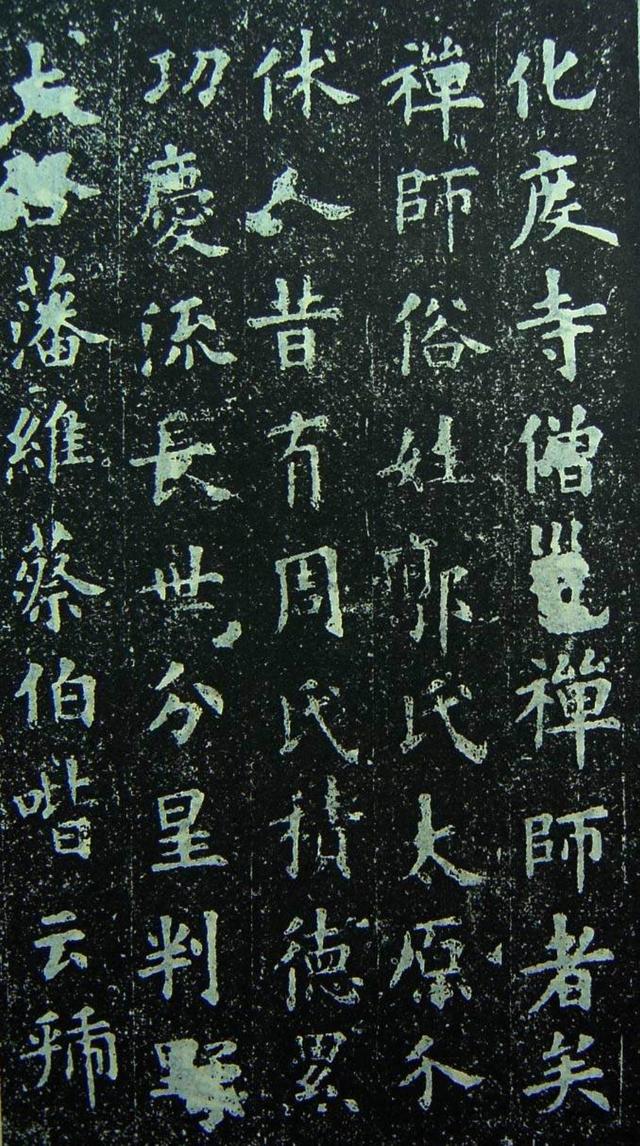 化度寺僧禪師者矣
禪師俗姓郭氏太原介
休人昔有周氏積德累
功慶流長世分星判野
藩維蔡伯喈云虢